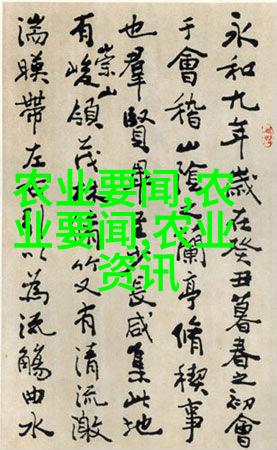 永和九年歲在癸丑暮春之初會
于會稽山陰之蘭亭脩稧事
也羣賢畢至少長咸集此地
有崇山峻領茂林脩竹又有清流激
湍暎帶左右引以為流觴曲水
农业要闻,农
业要闻,农业
资讯